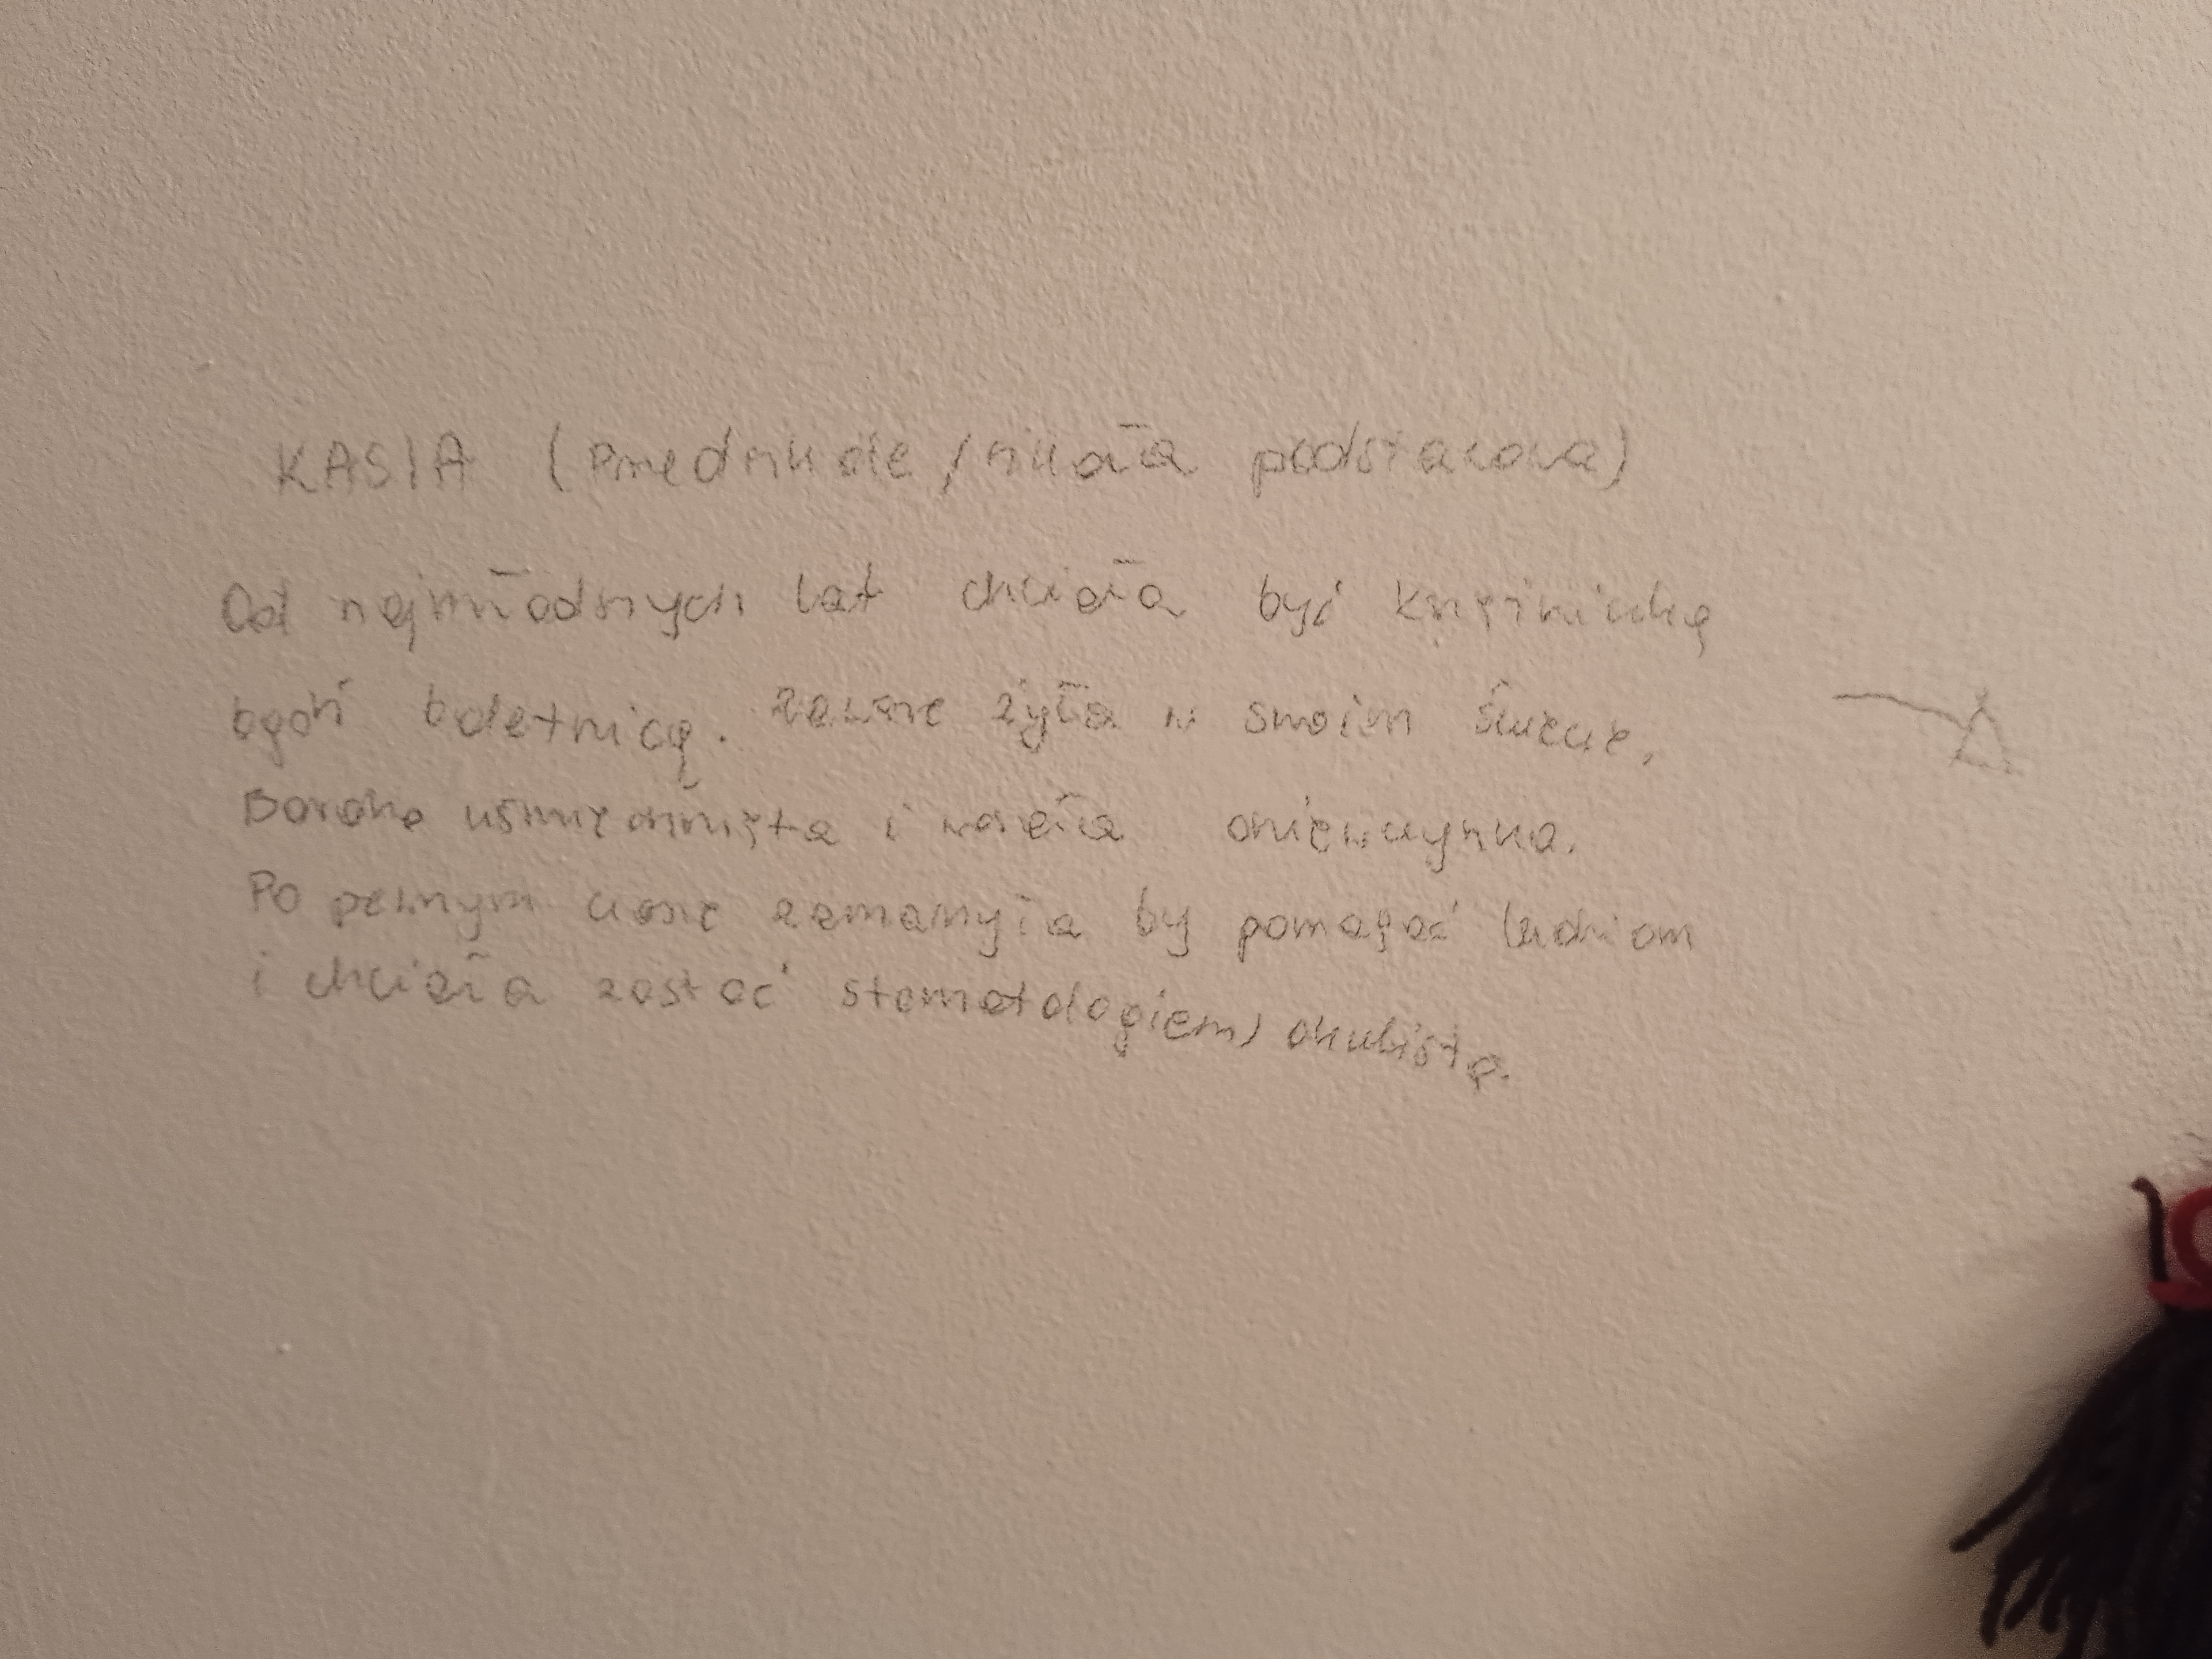 KASIA (Przedszkole / szkoła podstawowa)
Od najmłodszych lat chciała być księżniczką
bądź baletnicą. Zawsze żyła w swoim świecie,
Bardzo uśmiechnięta i wesoła dziewczynka.
Po pewnym czasie zamarzyła by pomagać ludziom
i chciała zostać stomatologiem, okulistą.